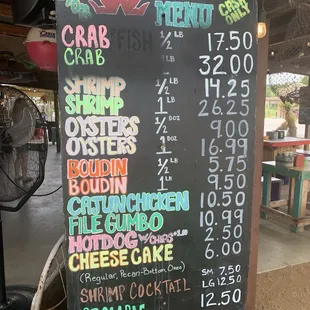 MENU
CASH
ONLY
CRAB FISH 1/2 LB 17.50
CRAB LB 32.00
SHRIMP 1/2 LB 14.25
SHRIMP 1 LB 26.25
OYSTERS 1/2 DOZ 9.00
OYSTERS 1 DOZ 16.99
BOUDIN 1/2 LB 5.75
BOUDIN 1 LB 9.50
CAJUN CHICKEN 10.50
FILE GUMBO 10.99
HOTDOG W/ CHIPS 2.50
CHEESE CAKE 6.00
(Regular, Pecan-Button, Oreo)
SHRIMP COCKTAIL SM 7.50
LG 12.50
12.50